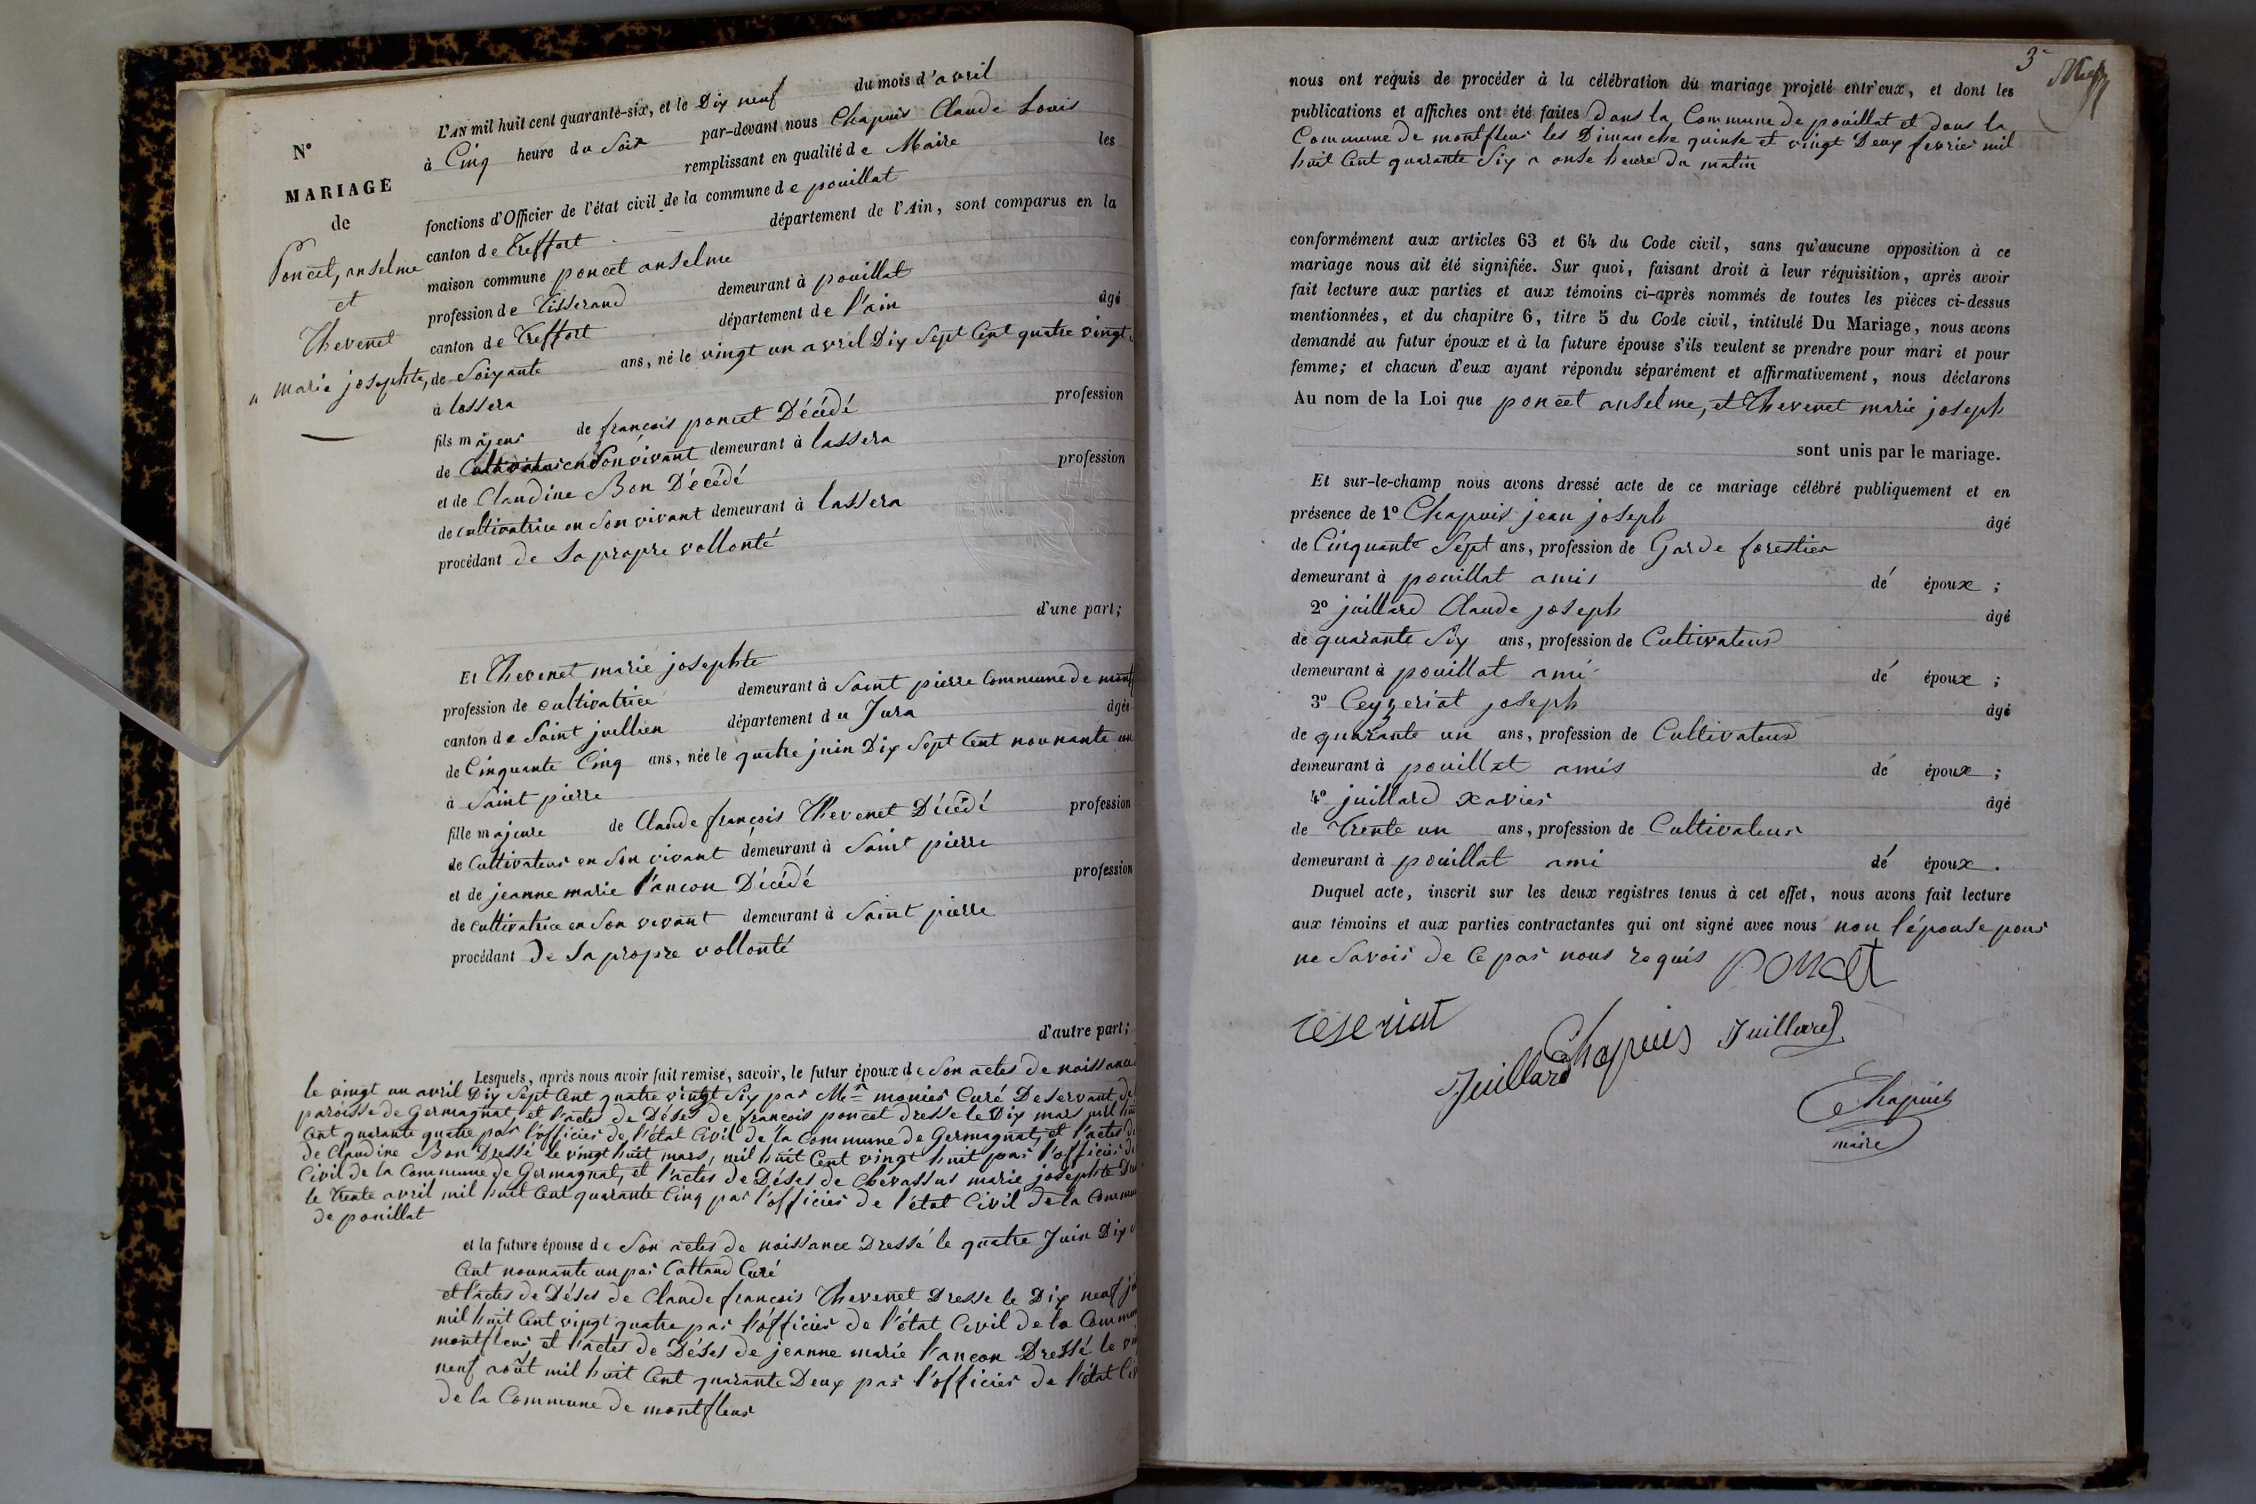 N°
MARIAGE
de
Poncet, anselme
et
Thevenet
marie josephte,
L'AN mil huit cent quarante-six, et le Dix neuf du mois d'avril
à Cinq heure du Soir par-devant nous Chapuis Claude Louis
remplissant en qualité de Maire les
fonctions d'Officier de l'état civil de la commune de pouillat
canton de Treffort département de l'Ain, sont comparus en la
maison commune poncet anselme
profession de Tisserand demeurant à pouillat
canton de Treffort département de l'ain âgé
de Soixante ans, né le vingt un avril Dix Sept Cent quatre vingt
à lassera
fils majeur de françois poncet Décédé profession
de Cultivateur en Son vivant demeurant à lassera
et de Claudine Bon Décédé profession
de cultivatrice en Son vivant demeurant à lassera
procédant de Sa propre vollonté
d'une part;
Et Thevenet marie josephte
profession de cultivatrice demeurant à Saint pierre Commune de
canton de Saint jullien département du Jura âgée
de Cinquante Cinq ans, née le quatre juin Dix Sept Cent nonnante un
à Saint pierre
fille majeure de Claude françois Thevenet Décédé profession
de Cultivateur en Son vivant demeurant à Saint pierre
et de jeanne marie l'ançon Décédé profession
de cultivatrice en Son vivant demeurant à Saint pierre
procédant De Sa propre vollonté
d'autre part;
Lesquels, après nous avoir fait remise, savoir, le futur époux de Son actes de naissance
le vingt un avril Dix Sept Cent quatre vingt Six par Mr monier Curé Deservant de
paroisse de Germagnat, et l'actes de Déses de françois poncet dresse le Dix mars mil huit
Cent quarante quatre par l'officier de l'état Civil de la Commune de Germagnat, et l'actes de
de Claudine Bon Dressé le vingt huit mars, mil huit Cent vingt huit par l'officier de
Civil de la Commune de Germagnat, et l'actes de Déses de Chevassus marie josephte
le trente avril mil huit Cent quarante Cinq par l'officier de l'état Civil de la Commune
de pouillat
et la future épouse de Son actes de naissance Dressé le quatre Juin Dix
Cent nonnante un par Cattand Curé
et l'actes de Déses de Claude françois Thevenet Dresse le Dix neuf
mil huit Cent vingt quatre par l'officier de l'état Civil de la
montfleur et l'actes de Déses de jeanne marie l'ançon Dressé le
neuf août mil huit Cent quarante Deux par l'officier de l'état
de la Commune de montfleur
3
nous ont requis de procéder à la célébration du mariage projeté entr'eux, et dont les
publications et affiches ont été faites Dans la Commune de pouillat et dans la
Commune de montfleur les Dimanche quinse et vingt Deux fevrier mil
huit Cent quarante Six a onse heure du matin
conformément aux articles 63 et 64 du Code civil, sans qu'aucune opposition à ce
mariage nous ait été signifiée. Sur quoi, faisant droit à leur réquisition, après avoir
fait lecture aux parties et aux témoins ci-après nommés de toutes les pièces ci-dessus
mentionnées, et du chapitre 6, titre 5 du Code civil, intitulé Du Mariage, nous avons
demandé au futur époux et à la future épouse s'ils veulent se prendre pour mari et pour
femme; et chacun d'eux ayant répondu séparément et affirmativement, nous déclarons
Au nom de la Loi que poncet anselme, et Thevenet marie joseph
sont unis par le mariage.
Et sur-le-champ nous avons dressé acte de ce mariage célébré publiquement et en
présence de 1° Chapuis jean joseph âgé
de Cinquante Sept ans, profession de Garde forestier
demeurant à pouillat amis dé époux ;
2° juillard Claude joseph âgé
de quarante Six ans, profession de Cultivateur
demeurant à pouillat ami dé époux ;
3° Ceyzeriat joseph âgé
de quarante un ans, profession de Cultivateur
demeurant à pouillat amis dé époux ;
4° juillard xavier âgé
de Trente un ans, profession de Cultivateur
demeurant à pouillat ami dé époux.
Duquel acte, inscrit sur les deux registres tenus à cet effet, nous avons fait lecture
aux témoins et aux parties contractantes qui ont signé avec nous non l'épouse pour
ne Savoir de Ce par nous requis poncet
ceseriat
Juillard Chapuis Juillard
Chapuis
maire